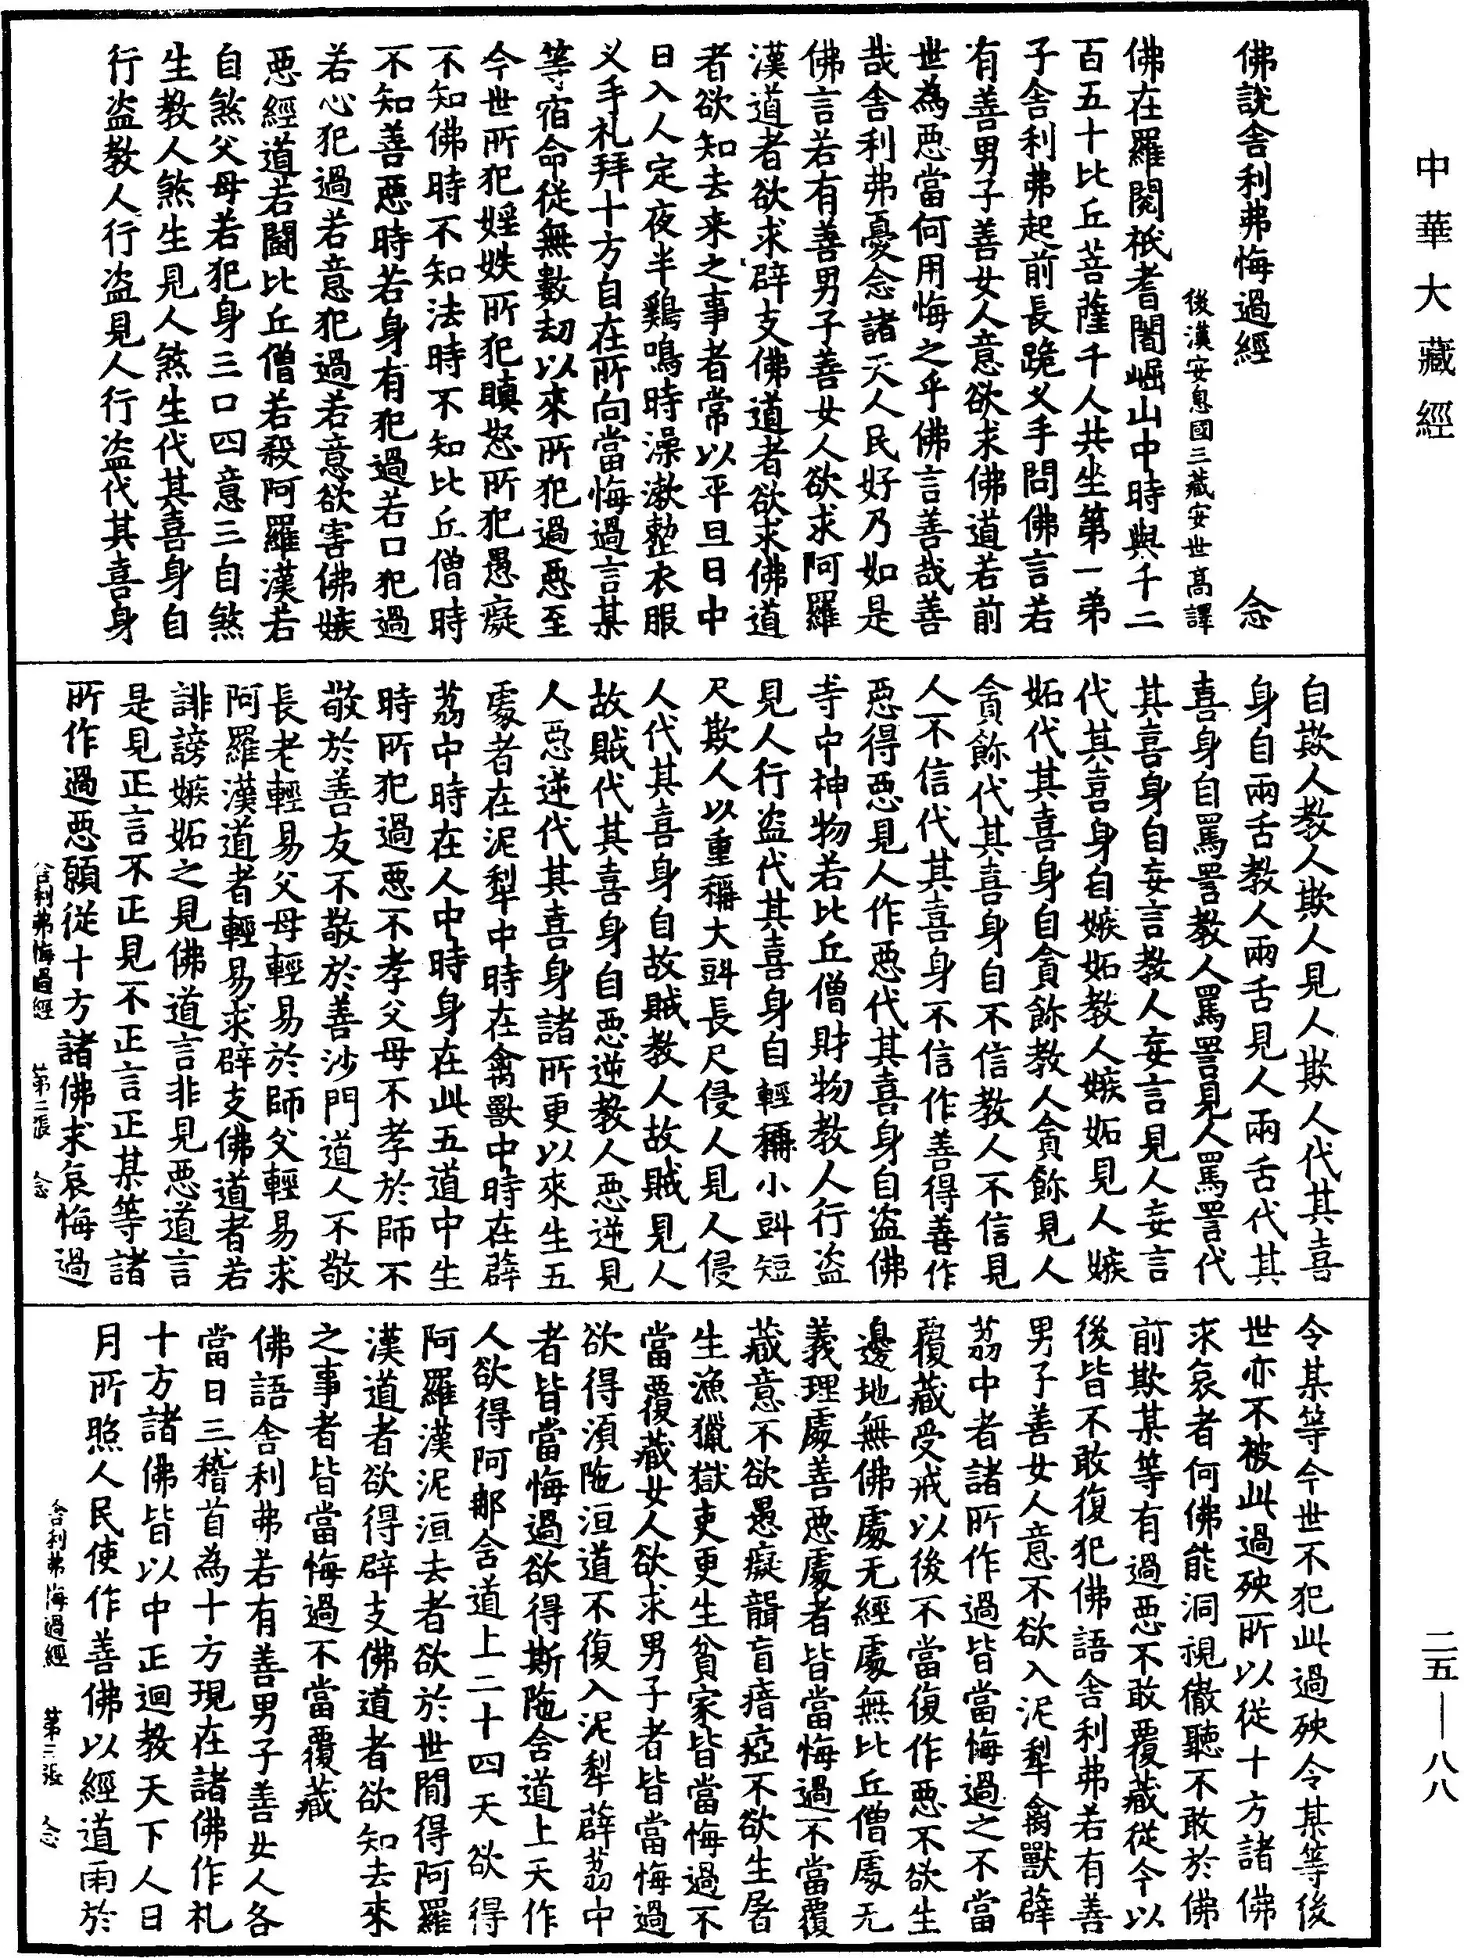 中華大藏經
二五—八八
佛說舍利弗悔過經　念
後漢安息國三藏安世高譯
佛在羅閱祇耆闍崛山中時與千二
百五十比丘菩薩千人共坐第一弟
子舍利弗起前長跪叉手問佛言若
有善男子善女人意欲求佛道若前
世為惡當何用悔之乎佛言善哉善
哉舍利弗憂念諸天人民好乃如是
佛言若有善男子善女人欲求阿羅
漢道者欲求辟支佛道者欲求佛道
者欲知去来之事者常以平旦日中
日入人定夜半鷄鳴時澡漱整衣服
叉手礼拜十方自在所向當悔過言某
等宿命從無數劫以來所犯過惡至
今世所犯婬妷所犯瞋怒所犯愚癡
不知佛時不知法時不知比丘僧時
不知善惡時若身有犯過若口犯過
若心犯過若意犯過若意欲害佛嫉
惡經道若鬪比丘僧若殺阿羅漢若
自煞父母若犯身三口四意三自煞
生教人煞生見人煞生代其喜身自
行盜教人行盜見人行盜代其喜身
自欺人教人欺人見人欺人代其喜
身自兩舌教人兩舌見人兩舌代其
喜身自罵詈教人罵詈見人罵詈代
其喜身自妄言教人妄言見人妄言
代其喜身自嫉妬教人嫉妬見人嫉
妬代其喜身自貪飻教人貪飻見人
貪飻代其喜身自不信教人不信見
人不信代其喜身不信作善得善作
惡得惡見人作惡代其喜身自盜佛
寺中神物若比丘僧財物教人行盜
見人行盜代其喜身自輕稱小㪷短
尺欺人以重稱大㪷長尺侵人見人侵
人代其喜身自故賊教人故賊見人
故賊代其喜身自惡逆教人惡逆見
人惡逆代其喜身諸所更以來生五
處者在泥犁中時在禽獸中時在薜
荔中時在人中時身在此五道中生
時所犯過惡不孝父母不孝於師不
敬於善友不敬於善沙門道人不敬
長老輕易父母輕易於師父輕易求
阿羅漢道者輕易求辟支佛道者若
誹謗嫉妬之見佛道言非見惡道言
是見正言不正見不正言正某等諸
所作過惡願從十方諸佛求哀悔過
舍利弗悔過經　第二張　念
令某等今世不犯此過殃令某等後
世亦不被此過殃所以從十方諸佛
求哀者何佛能洞視徹聽不敢於佛
前欺某等有過惡不敢覆藏從今以
後皆不敢復犯佛語舍利弗若有善
男子善女人意不欲入泥犁禽獸薜
荔中者諸所作過皆當悔過之不當
覆藏受戒以後不當復作惡不欲生
邊地無佛處无經處無比丘僧處无
義理處善惡處者皆當悔過不當覆
藏意不欲愚癡聾盲瘖瘂不欲生屠
生漁獵獄吏更生貧家皆當悔過不
當覆藏女人欲求男子者皆當悔過
欲得湏陁洹道不復入泥犁薜荔中
者皆當悔過欲得斯陁含道上天作
人欲得阿那含道上二十四天欲得
阿羅漢泥洹去者欲於世間得阿羅
漢道者欲得辟支佛道者欲知去來
之事者皆當悔過不當覆藏
佛語舍利弗若有善男子善女人各
當日三稽首為十方現在諸佛作礼
十方諸佛皆以中正迴教天下人日
月所照人民使作善佛以經道雨於
舍利弗悔過經　第三張　念